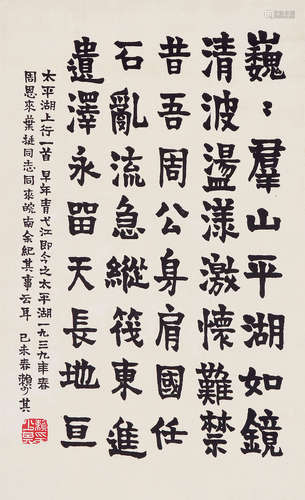 巍:群山平湖如鏡
清波盪漾激懷難禁
昔吾周公身肩國任
石亂流急縱筏東進
遺澤永留天長地亘
太平湖上行一首 早年青弋江即今之太平湖一九三九年春
周恩來葉挺同志同來皖南余紀其事云耳 己未春賴少其